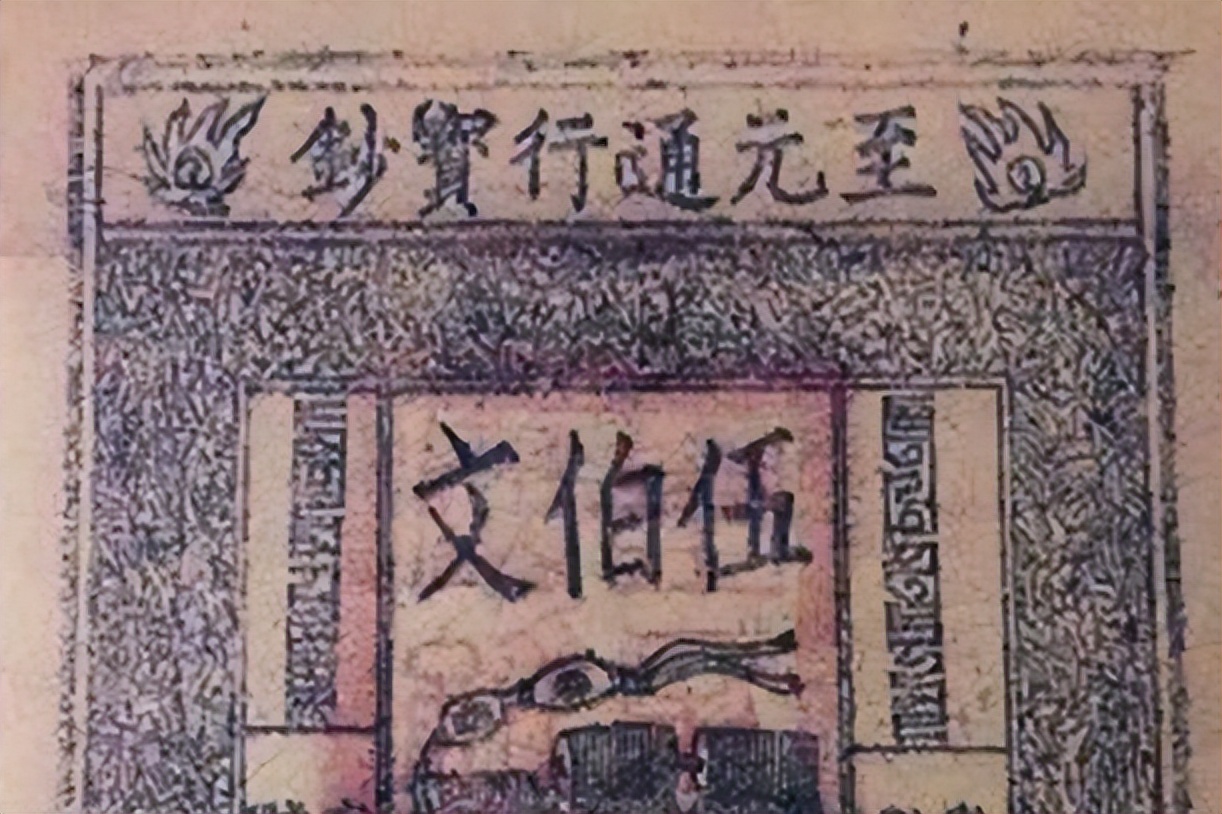 至元通行寶鈔
伍伯文